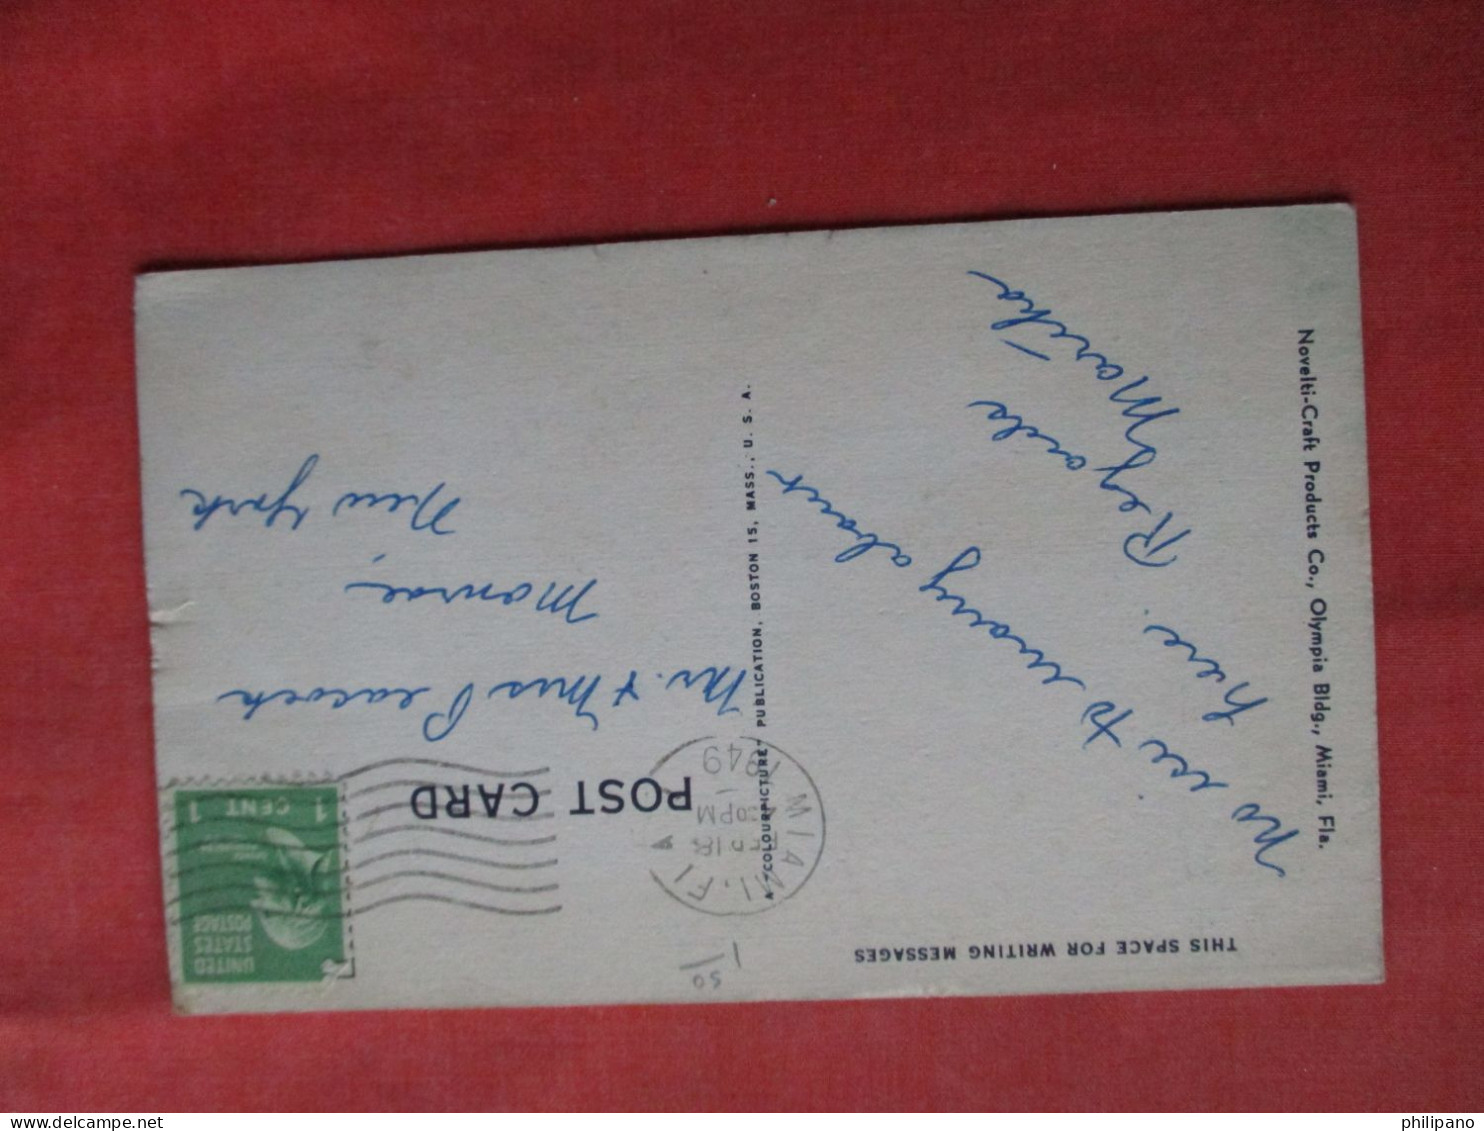 THIS SPACE FOR WRITING MESSAGES
no use to worry about
here. Regards
Martha
Novelti-Craft Products Co., Olympia Bldg., Miami, Fla.
A "COLOURPICTURE" PUBLICATION, BOSTON 15, MASS., U. S. A.
POST CARD
MIAMI, FLA
FEB 18
30 PM
1949
UNITED
STATES
POSTAGE
1 CENT 1
Mr. & Mrs Peacock
Monroe,
New York
1 50
philipano
delcampe.net